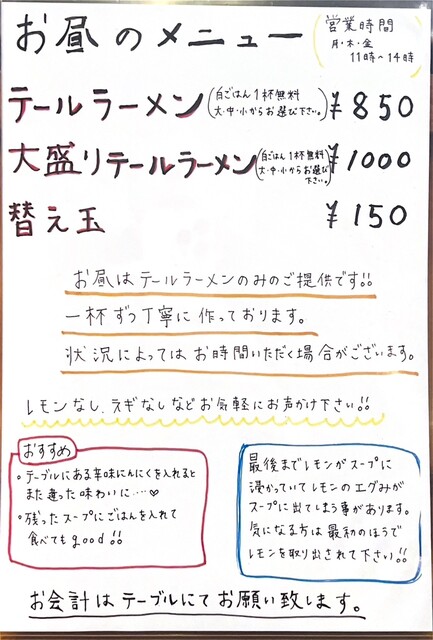 お昼のメニュー
営業時間
月・木・金
11時〜14時
テールラーメン (白ごはん1杯無料 ¥850
大・中・小からお選び下さい。)
大盛りテールラーメン (白ごはん1杯無料 ¥1000
大・中・小からお選び
下さい。)
替え玉 ¥150
お昼はテールラーメンのみのご提供です!!
一杯ずつ丁寧に作っております。
状況によってはお時間いただく場合がございます。
レモンなし、ネギなしなどお気軽にお声かけ下さい!!
おすすめ
・テーブルにある辛味にんにくを入れると
また違った味わいに…♡
・残ったスープにごはんを入れて
食べてもgood!!
最後までレモンがスープに
浸かっていてレモンのエグみが
スープに出てしまう事があります。
気になる方は最初のほうで
レモンを取り出されて下さい!!
お会計はテーブルにてお願い致します。